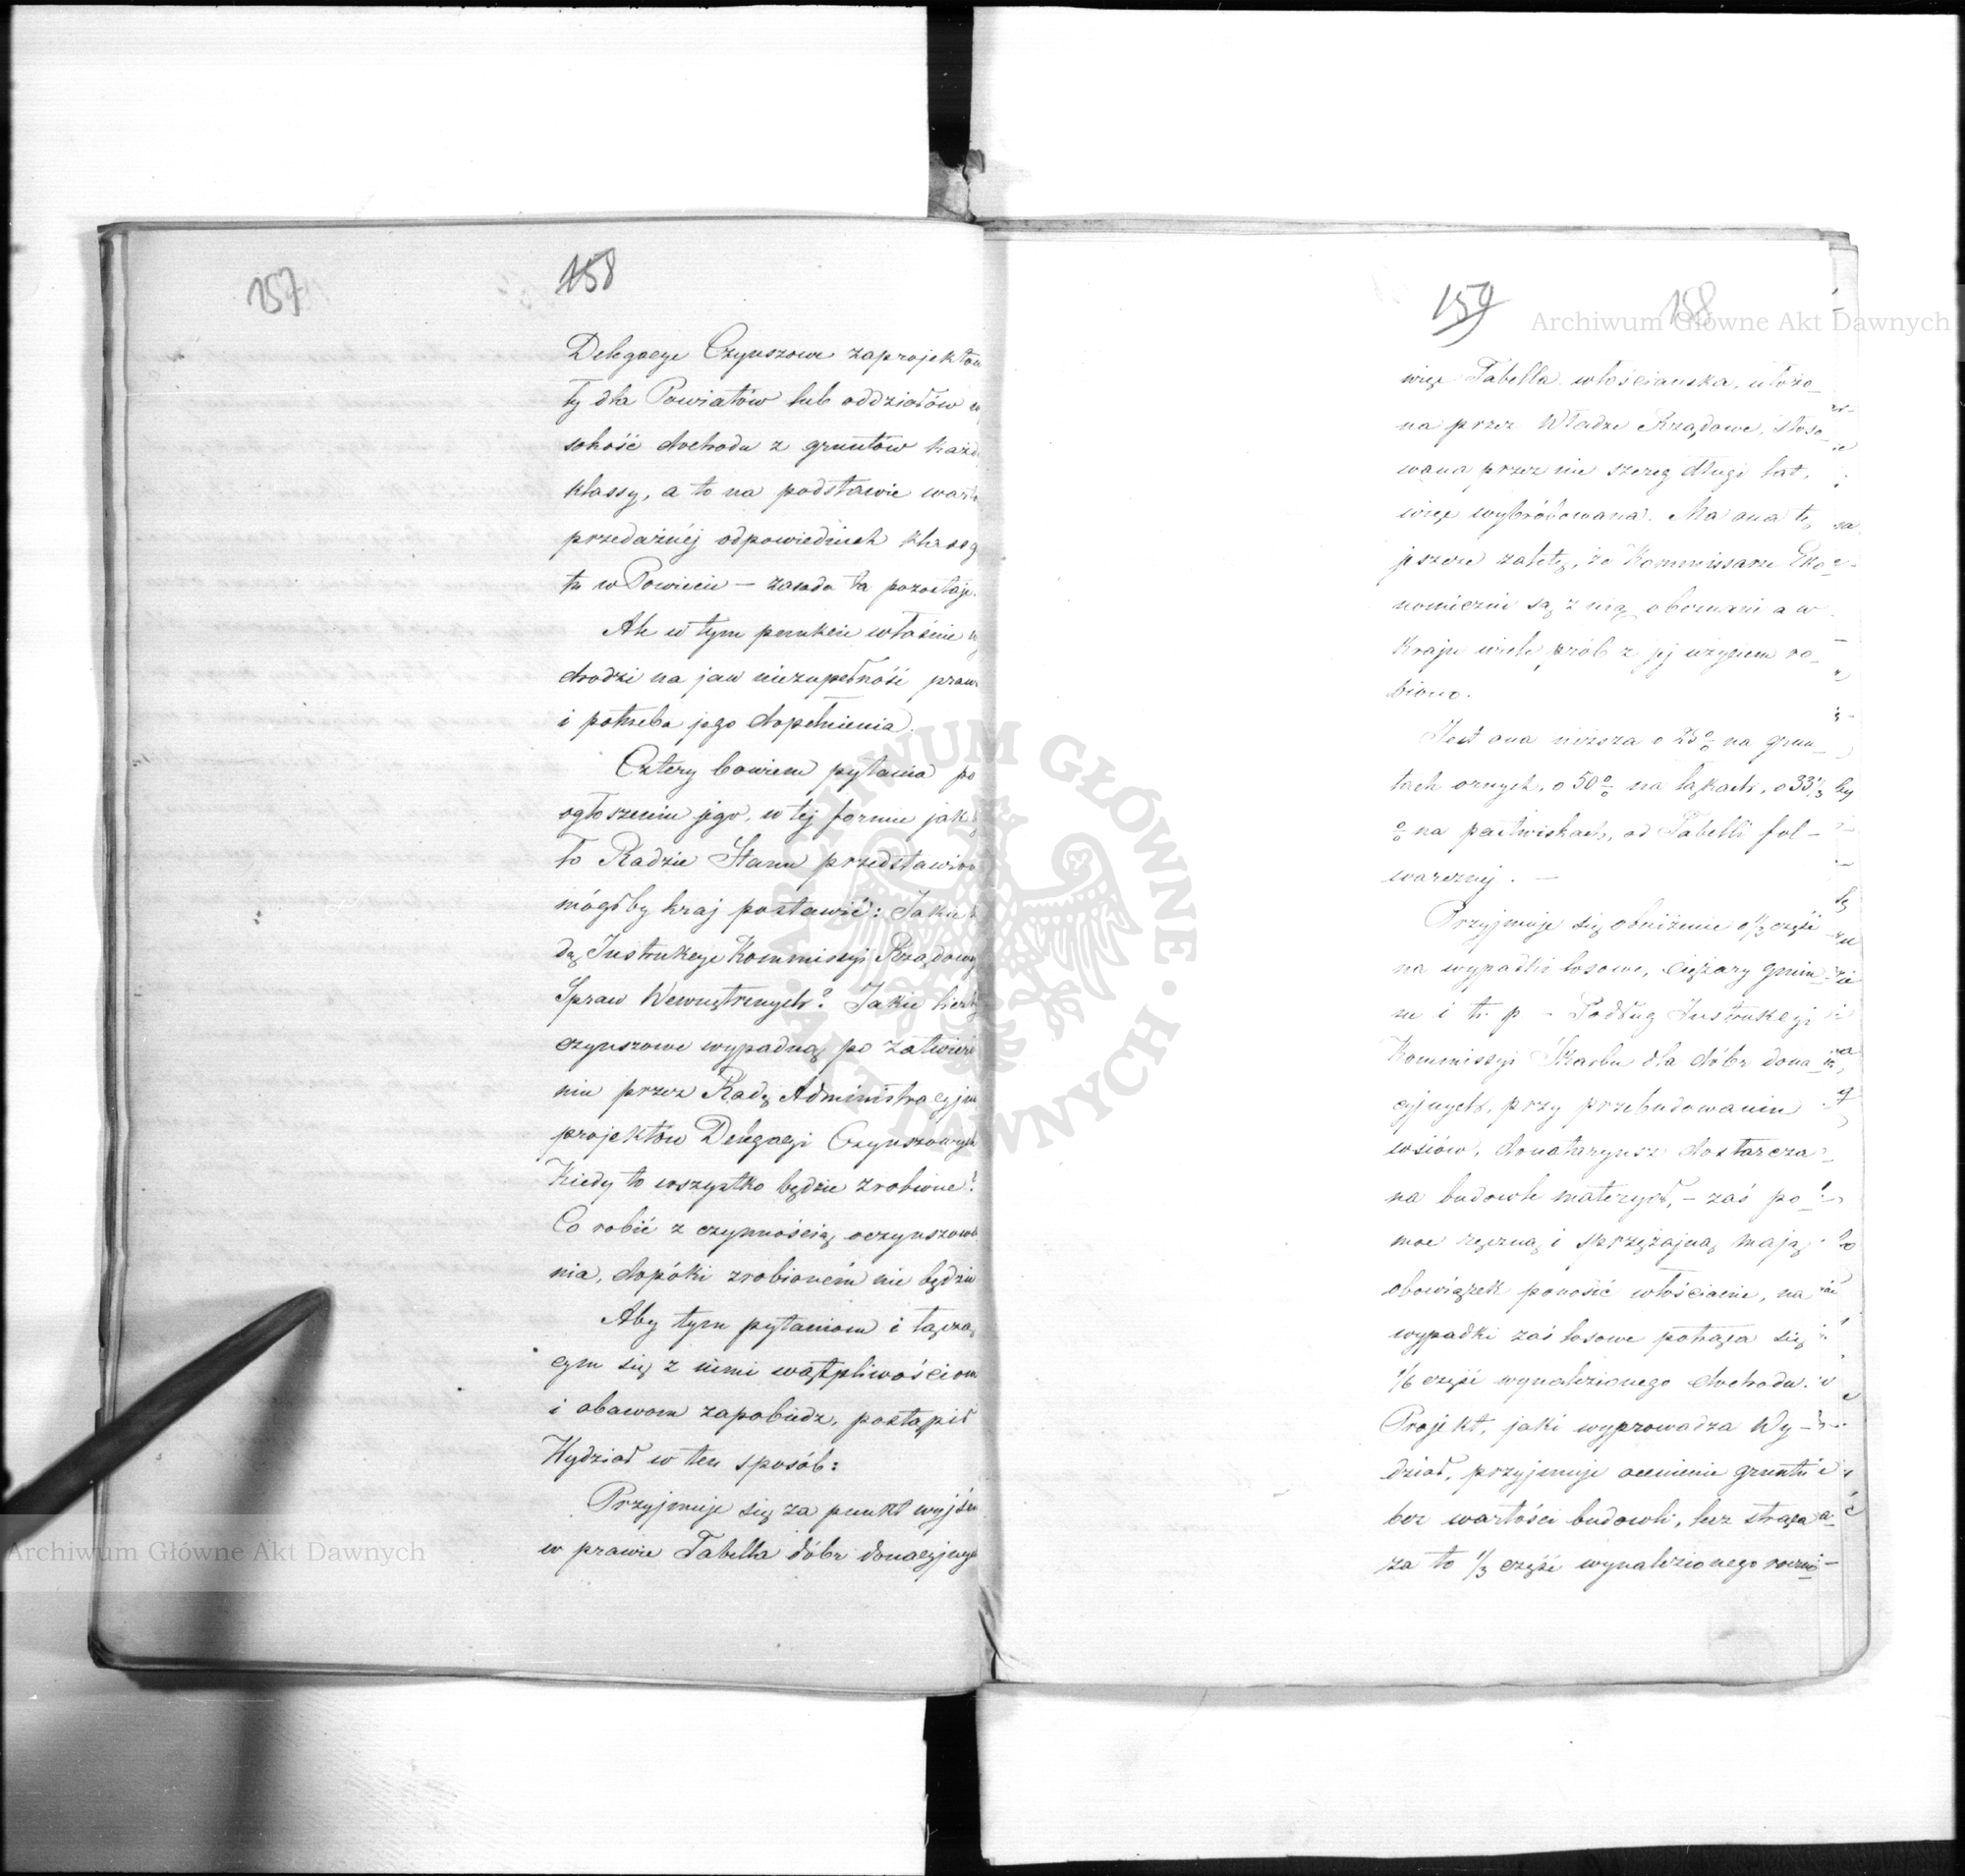 157
158
Delegacye Czynszowe zaprojektow
ty dla Powiatów lub oddziałów w
sokość dochodu z gruntów każd
klassy, a to na podstawie wart
przedażnéj odpowiednich klass g
tu w Powiecie — zasada ta pozostaje.
Ale w tym punkcie właśnie w
chodzi na jaw niezupełność praw
i potrzeba jego dopełnienia.
Cztery bowiem pytania po
ogłoszeniu jego, w tej formie jak
to Radzie Stanu przedstawion
mógłby kraj postawić: Jakie b
dą Instrukcye Kommissyi Rządowej
Spraw Wewnętrznych? Jakie
czynszowe wypadną po zatwier
niu przez Radę Administracyjn
projektów Delegacyi Czynszowych
Kiedy to wszystko będzie zrobione?
Co robić z czynnością oczynszowa
nia, dopóki zrobioném nie będzie
Aby tym pytaniom i łączą
cym się z niemi wątpliwościom
i obawom zapobiedz, postąpił
Wydział w ten sposób:
Przyjmuje się za punkt wyjśc
w prawie Tabella dóbr donacyjnyc
159
158
więc Tabella włościańska, ułożo-
na przez Władze Rządowe, stoso-
wana przez nie szereg długi lat,
więc wypróbowana. Ma ona tę
jeszcze zaletę, że Kommissarze Eko-
nomiczni są z nią obeznani a w
Kraju wiele prób z jej użyciem ro-
biono.
Jest ona niższa o 25 % na grun-
tach ornych, o 50 % na łąkach, o 33 1/3
% na pastwiskach, od Tabelli fol-
warcznej. —
Przyjmuje się obniżenie o 1/3 części
na wypadki losowe, ciężary gmin-
ne i t. p — Podług Instrukcyi
Kommissyi Skarbu dla dóbr dona-
cyjnych, przy przebudowaniu
wsiów, donataryusz dostarcza
na budowle materyał, — zaś po-
moc ręczną i sprzężajną mają
obowiązek ponosić włościanie, na
wypadki zaś losowe potrąca się
1/6 części wynalezionego dochodu.
Projekt, jaki wyprowadza Wy-
dział, przyjmuje ocenienie gruntu
bez wartości budowli, lecz strąca
za to 1/3 część wynalezionego roczni-
Archiwum Główne Akt Dawnych
Archiwum Główne Akt Dawnych
ARCHIWUM GŁÓWNE
AKT DAWNYCH